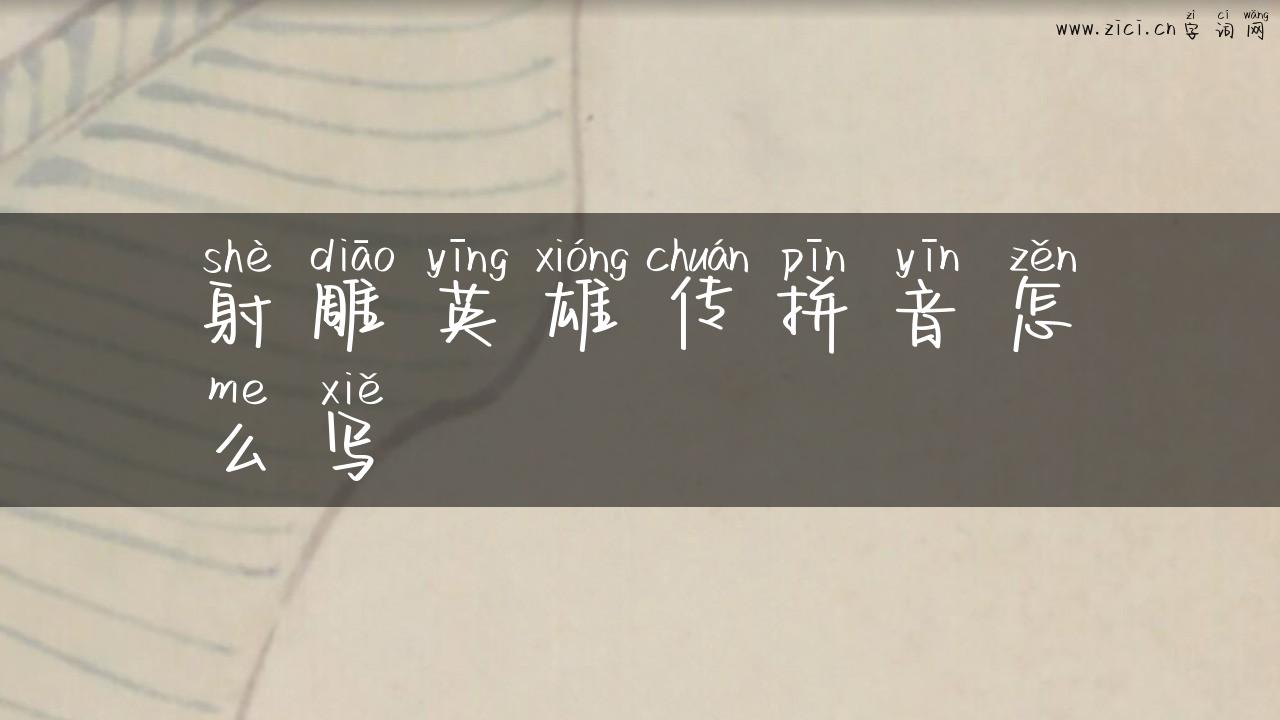 zì cí wǎng
www.zici.cn 字词网
shè diāo yīng xióng chuán pīn yīn zěn
射雕英雄传拼音怎
me xiě
么写